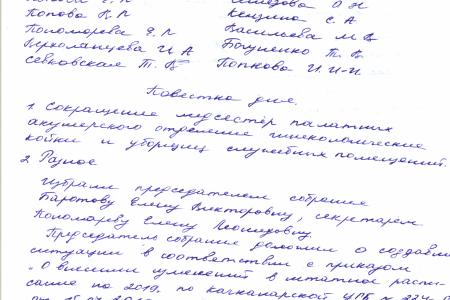 Попова В.П
Пономарева Э.П
Верхоланцева И.А
Севковская Т.В
О Н
Кензина С А
Васильева М В
Боциенко Т. В.
Попкова И.И-И
Повестка дня.
1. Сокращение медсестёр палатных
акушерского отделение гинекологические
койки и уборщиц служебных помещений.
2 Разное
Избрали председателем собрание
Баротову Елену Викторовну, секретарем
Пономареву Елену Леонидовну.
Председатель собрание доложил о создавш
ситуации в соответствии с приказом
"О внесении изменений в штатное распи-
сание по 2019, по качканарской ЦГБ №
от 15.04